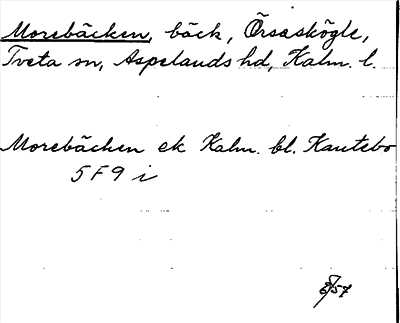 Morebäcken, bäck, Örsaskögle,
Tveta sn, Aspelands hd, Kalm. l.
Morebäcken ek Kalm. bl. Kantebo
5F9 i